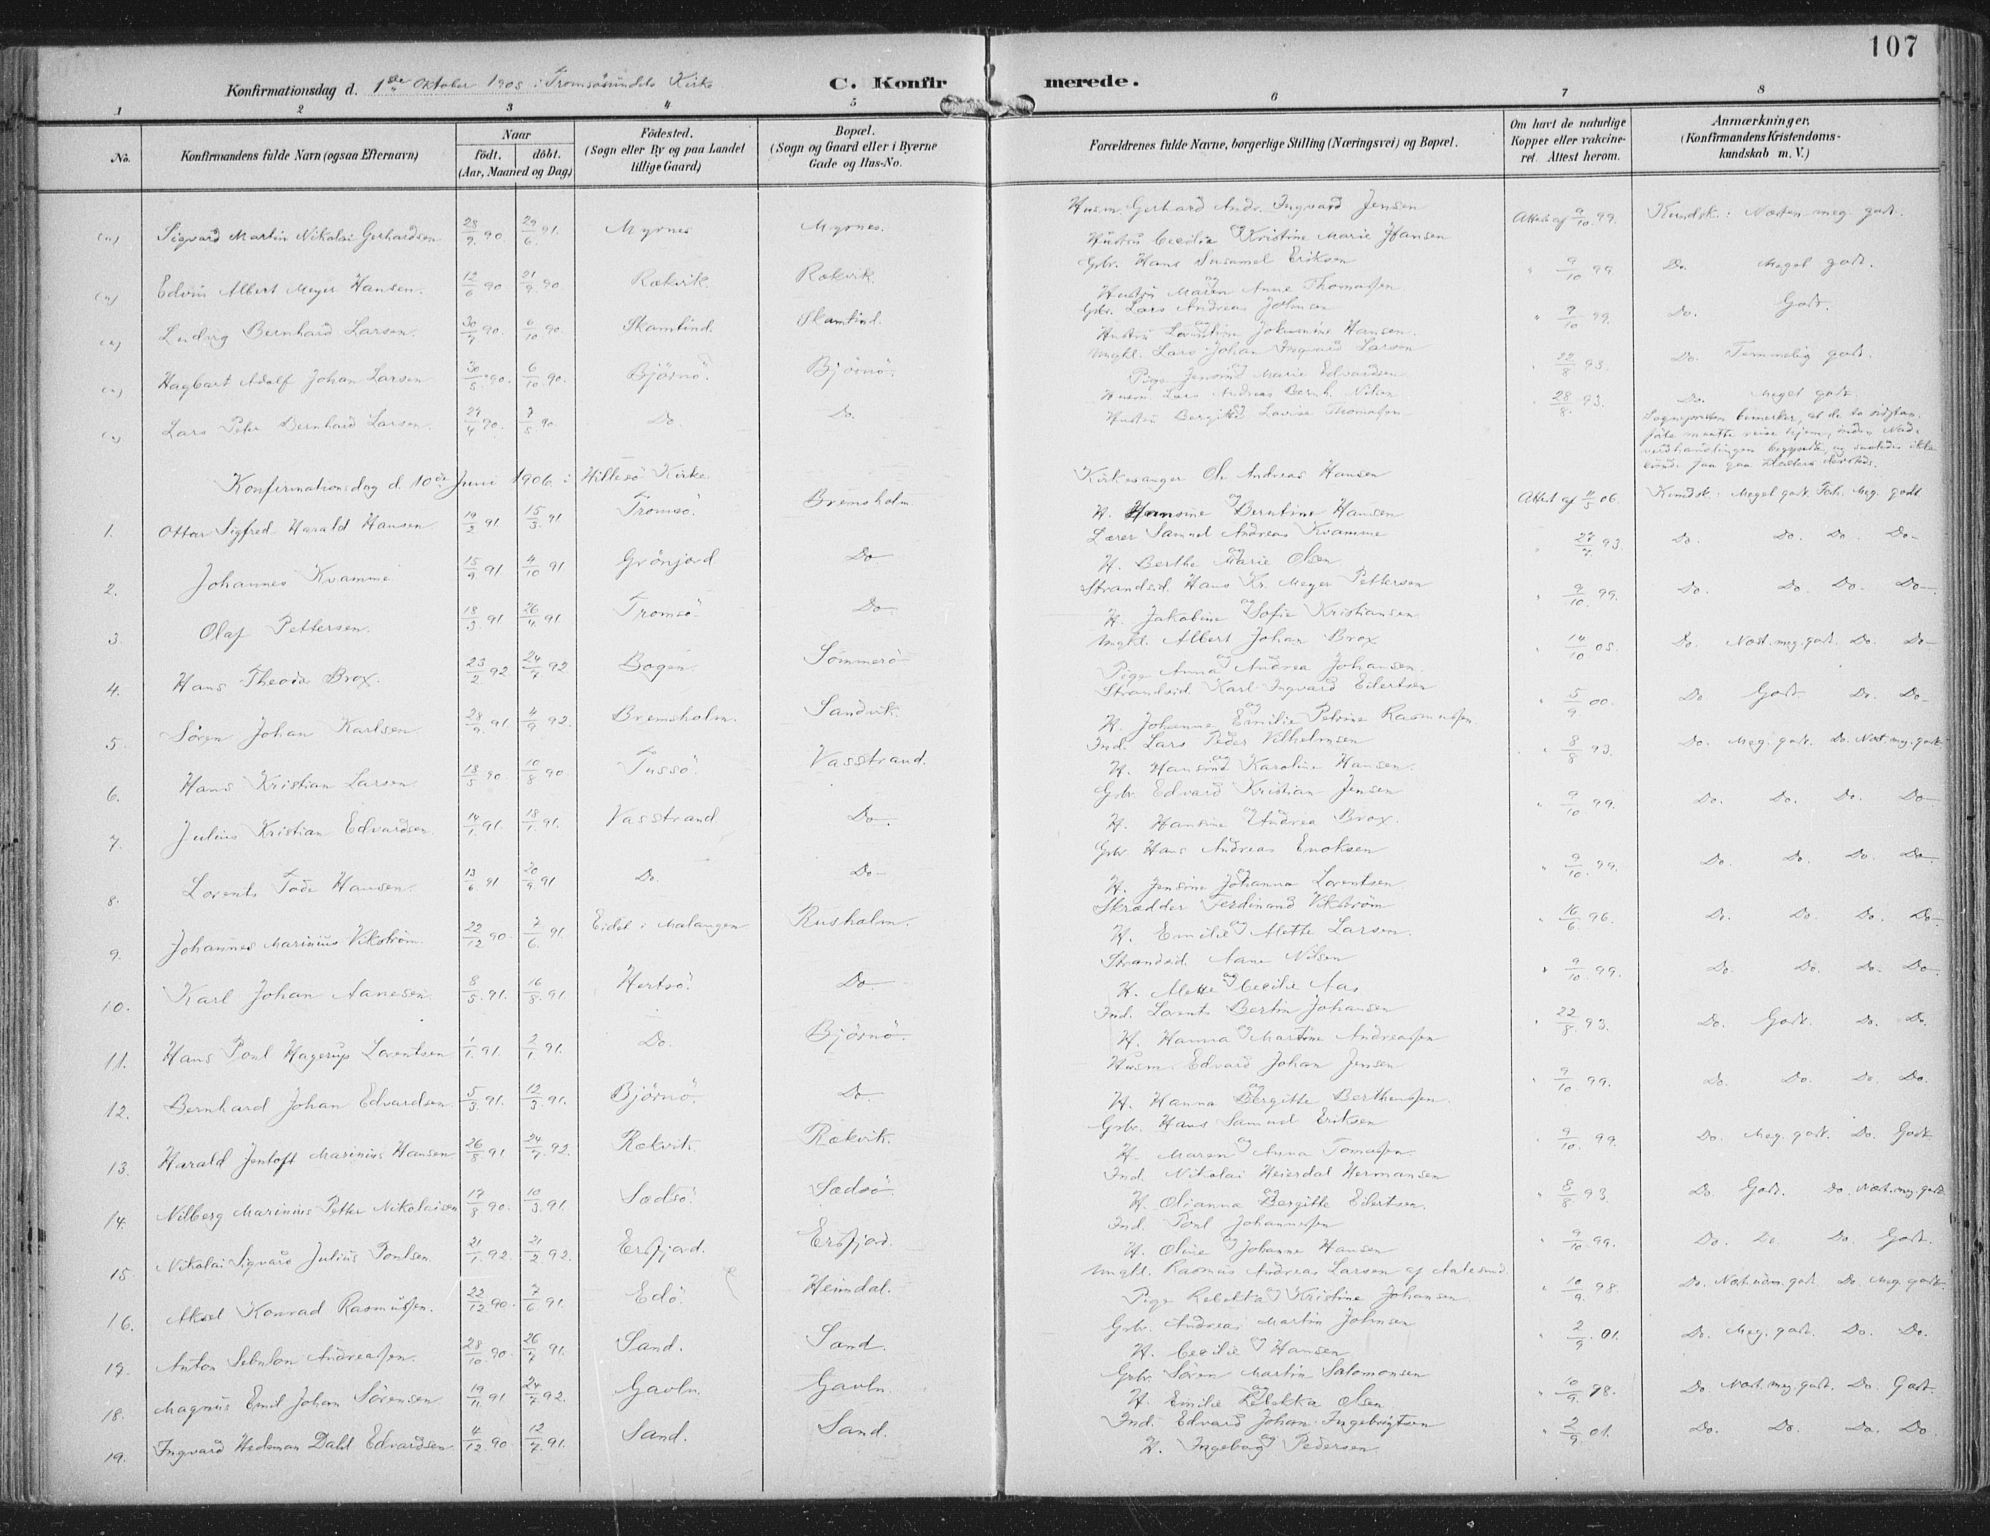 107
Konfirmationsdag d. 1ste Oktober 1905 i Tromsøsundets Kirke C. Konfirmerede.
1 2 3 4 5 6 7 8
No. Konfirmandens fulde Navn (ogsaa Efternavn) Naar födt. döbt. (Aar, Maaned og Dag) Födested. (Sogn eller By og paa Landet tillige Gaard) Bopæl. (Sogn og Gaard eller i Byerne Gade og Hus-No. Forældrenes fulde Navne, borgerlige Stilling (Næringsvei) og Bopæl. Om havt de naturlige Kopper eller vakcineret. Attest herom. Anmærkninger, (Konfirmandens Kristendomskundskab m. V.)
Sigvard Martin Nikolai Gerhardsen 28/9 90 29/6 91. Myrnes Myrnes. Husm. Gerhard Andr. Ingvard Jensen og Hustru Cecilie Kristine Marie Hansen Attest af 9/10 99. Kundsk: Næsten meg. godt.
Edvin Albert Meyer Hansen. 12/6 90 21/9 90. Rækvik. Rækvik. Gbr. Hans Samuel Eriksen og Hustru Maren Anne Thomassen " 9/10 99 Do. Meget godt.
Ludvig Bernhard Larsen. 30/7 90. 6/10 90. Skamtind. Skamtind. Gbr. Lars Andreas Johnsen og Hustru Hansen. " 9/10 99. Do. Godt.
Hagbart Adolf Johan Larsen 30/5 90. 6/10 90. Bjørnø. Bjørnø. Ungkl. Lars Johan Ingvald Larsen Pige Jensine Marie Edvardsen " 22/8 93. Do. Temmelig godt.
Lars Peter Bernhard Larsen. 7/5 90. Do. Do. Lars Andreas Bernh. Nilsen og Hustru Bergitte Lovise Thomassen " 28/8 93. Do. Meget godt
Sognepresten bemerker, at de to sidstanførte maatte reise hjem, inden
Konfirmationsdag d. 10de Juni 1906 i Hillesø Kirke
1. Ottar Sigfred Harald Hansen 19/2 91. 15/3 91 Tromsø. Bremsholm. Kirkesanger Ole Andreas Hansen og H. Hansine Berntine Hansen Attest af 06. Kundsk: Meget godt. Forh. Meg. godt
2. Johannes Kvamme 15/9 91 4/10 91 Grønfjord Do Lærer Samuel Andreas Kvamme og H. Berthe Marie Olsen " 93. Do. Do. Do. Do
3. Olaf Pettersen. 18/3 91 26/4 91 Tromsø Do. Strandsid. Hans Kr. Meyer Pettersen og H. Jakobine Sofie Kristiansen " 9/10 99. Do. Do. Do. Do
4. Hans Theodor Brox. 23/2 92 24/7 92. Bogen. Sommerø Ungkl. Albert Johan Brox og Pige Anna Andrea Johansen. " 14/10 05. Do. Næst. meg. godt. Do. Do
5. Søren Johan Karlsen 28/9 91 4/9 92. Bremsholm. Sandvik. Strandsid. Karl Ingvard Eilertsen og H. Johanna Emilie Petrine Rasmussen. " 5/9 00. Do Godt. Do. Do
6. Hans Kristian Larsen 13/5 90. 10/8 90 Tussø. Vasstrand. Ind. Lars Peder Vilhelmsen og H. Hansine Karoline Hansen. " 8/8 93. Do. Meg. godt. Do. Næst. meg. godt.
7. Julius Kristian Edvardsen. 14/1 91. 18/1 91. Vasstrand Do. Gbr. Edvard Kristian Jensen og H. Hansine Andrea Brox. " 9/10 99. Do. Do. Do. Do
8. Lorents Hansen. 13/6 91 20/9 91 Do. Do Gbr. Hans Andreas Enoksen og H. Jensine Johanna Lorentsen. " 9/10 99. Do. Do. Do. Do
9. Johannes Marinius Vikstrøm. 22/12 90. 7/6 91. Eidet i Malangen Rusholm. Skrædder Ferdinand Vikstrøm og H. Emilie Mette Larsen. " 16/6 96. Do. Do. Do. Do
10. Karl Johan Aanesen. 8/5 91. 16/8 91 Hertsø. Do Strandsid. Aane Nilsen og H. Mette Cecilie Aas " 9/10 99. Do. Do. Do Do
11. Hans Poul Hagerup Lorentsen 1/1 91. 2/1 91. Do. Bjørnø. Ind. Lorents Bertin Johansen og H. Hanna Martine Andreassen " 22/8 93. Do. Godt. Do. Do.
12. Bernhard Johan Edvardsen. 5/3 91. 12/3 91. Bjørnø. Do. Husm. Edvard Johan Jensen og H. Hanna Bergitte Bertheussen. " 9/10 99. Do. Do. Do. Do.
13. Harald Jentoft Marinius Hansen 26/8 91 24/7 92. Rækvik Rækvik. Gbr. Hans Samuel Eriksen og H. Maren Anna Tomassen. " 9/10 99. Do. Meg. godt. Do. Godt
14. Nilberg Marinius Petter Nikolaisen 17/8 90. 10/3 91. Sødsø. Sødsø. Ind. Nikolai Heierdal Hermansen og H. Olianna Bergitte Eilertsen. " 8/8 93. Do Godt. Do. Næst. meg. godt
15. Nikolai Sigvard Julius Poulsen. 21/1 92. 21/2 92. Ersfjord. Ersfjord. Ind. Poul Johannessen og H. Oline Johanne Hansen " 9/10 99. Do. Do. Do. Godt.
16. Aksel Konrad Rasmussen. 22/12 90. 7/6 91. Edø. Heimdal. Ungkl. Rasmus Andreas Larsen af Aalesund. og Pige Rebekka Kristine Johansen. " 10/9 98. Do. Næst. godt. Do. Meg. godt.
17. Anton Sebulon Andreassen. 28/10 90. 26/7 91. Sand. Sand. Gbr. Andreas Martin Johnsen og H. Cecilie Hansen " 2/9 01. Do. Meg. godt. Do. Do.
18. Magnus Emil Johan Sørensen 19/11 91 24/7 92. Gavln. Gavln. Gbr. Søren Martin Salomonsen og H. Emilie Rebekka Olsen " 10/9 98. Do. Næst. meg. godt. Do. Godt.
19. Ingvard Hedeman Dahl Edvardsen. 4/12 90 12/7 91. Sand. Sand. Ind. Edvard Johan Ingebrigtsen og H. Ingeborg Pedersen " 2/9 01. Do. Do. Do. Do.